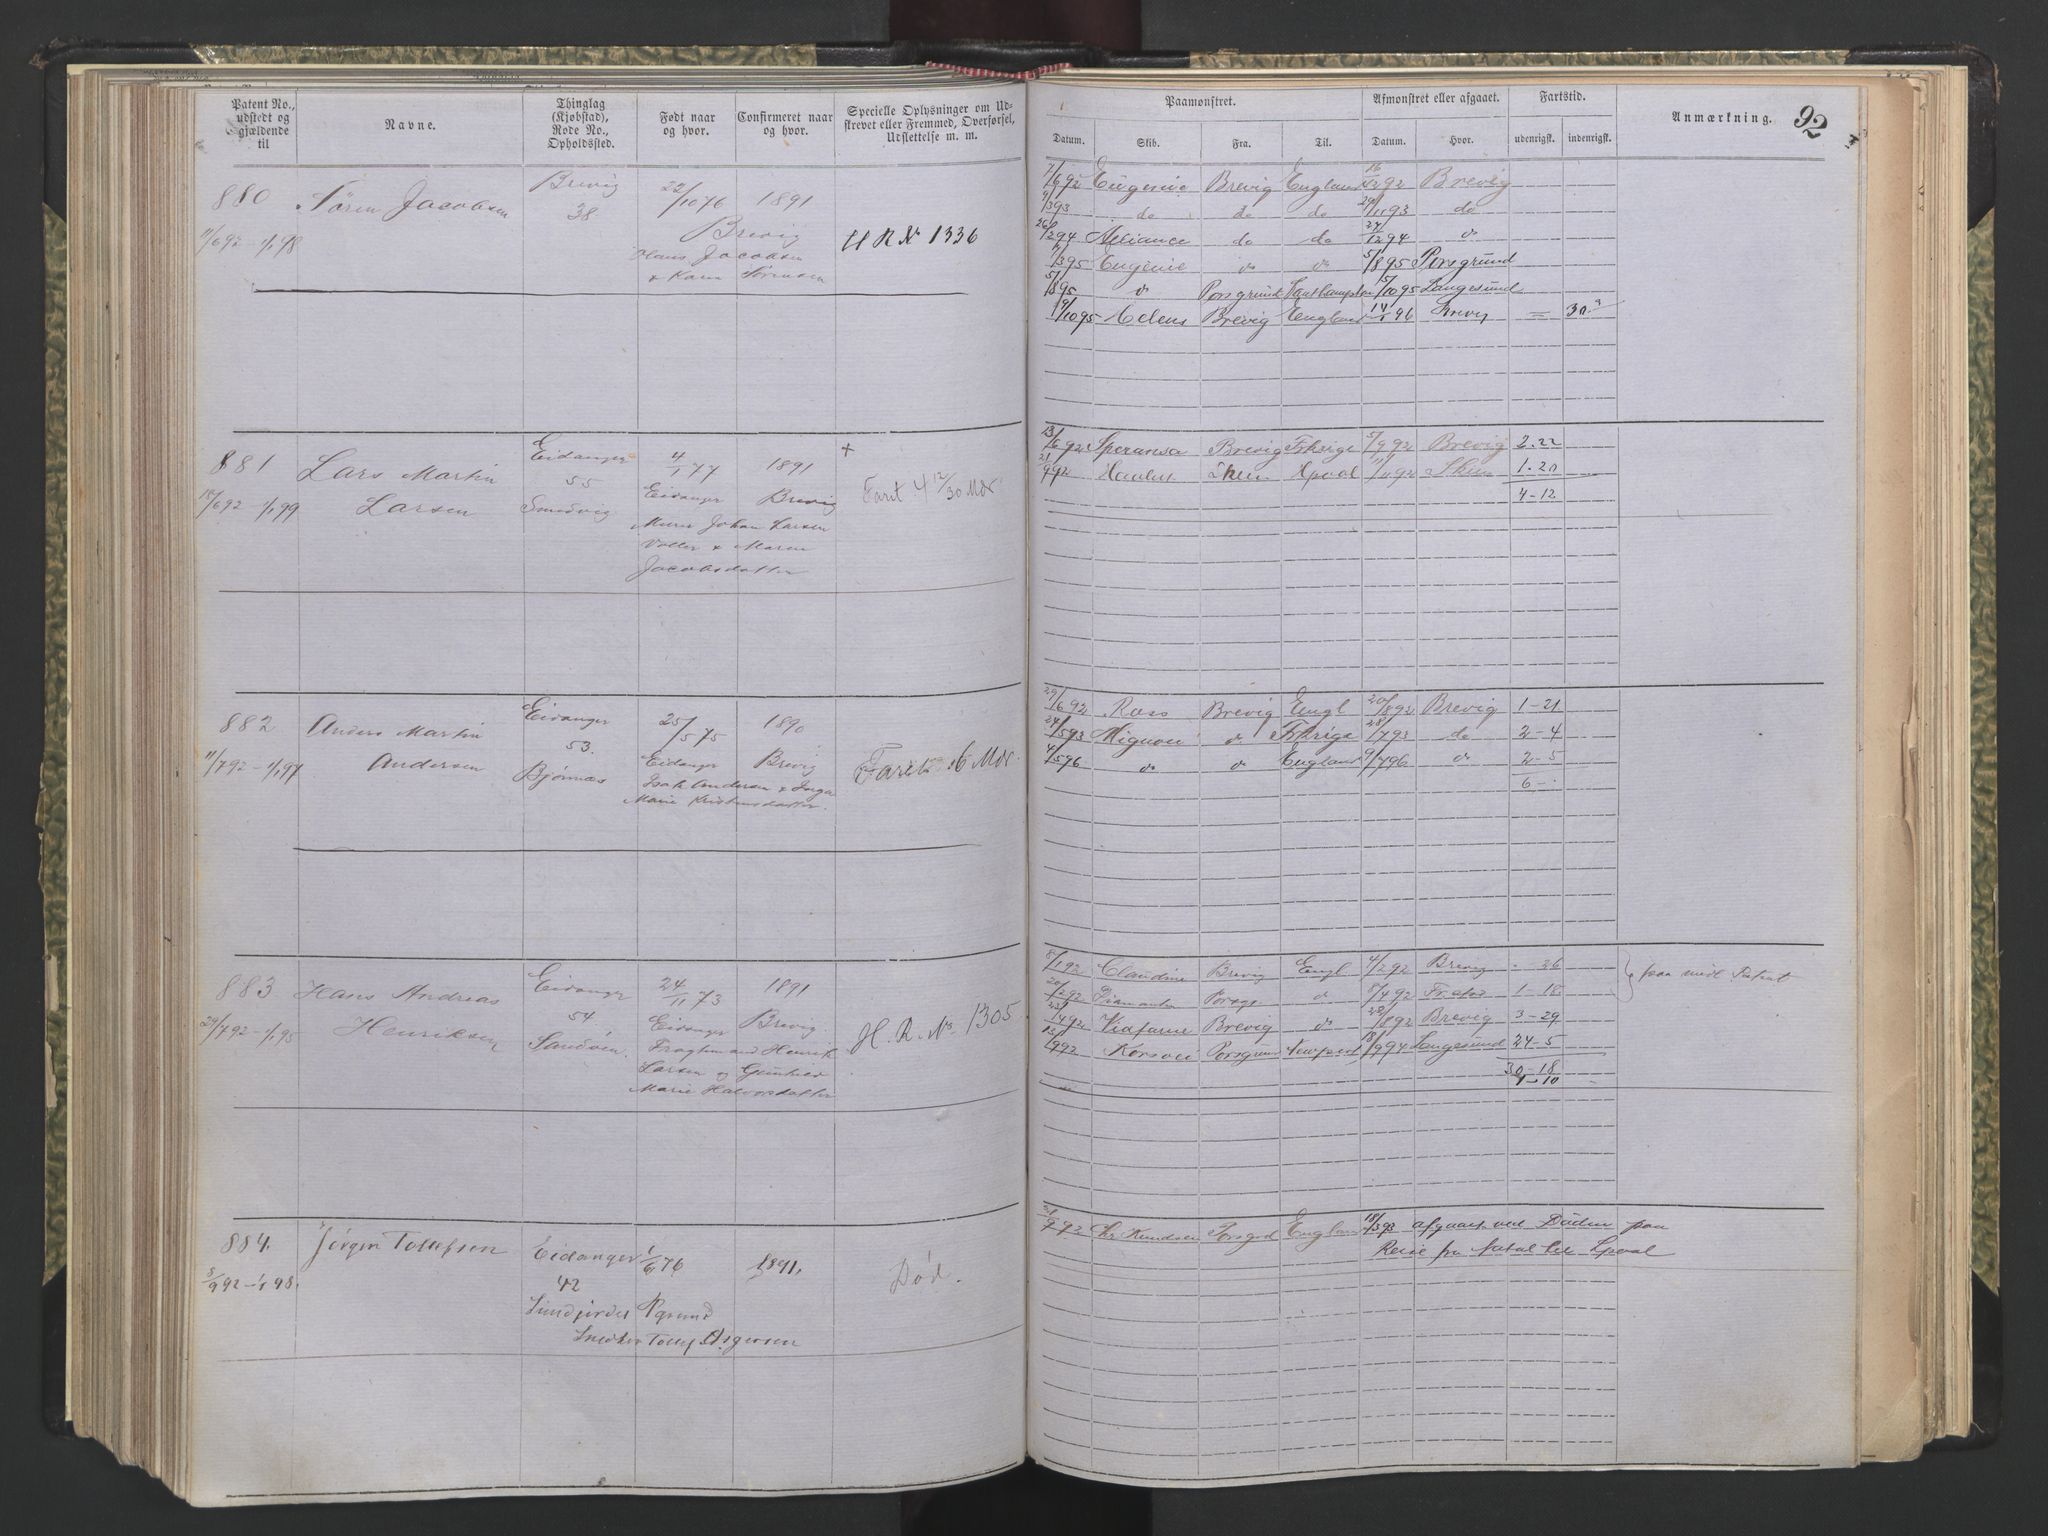 Patent No., udstedt og gjældende til
Navne.
Thinglag (Kjøbstad), Rode No., Opholdssted.
Født naar og hvor.
Confirmeret naar og hvor.
Specielle Oplysninger om Udstrevet eller Fremmed, Overførsel, Udslettelse m. m.
Paamønstret.
Afmønstret eller afgaaet.
Fartstid.
Anmærkning.
92
Datum.
Skib.
Fra.
Til.
Datum.
Hvor.
udenrigsk.
indenrigsk.
880
Søren Jacobsen
Brevig
38
22/10 76
1891
Brevig
Hans Jacobsen
& Karen Sørensen
11/6 92 - 1/1 98
H R No 1336
7/6 92 Eugenie Brevig England 92 Brevig
9/3 93 do do do 29/11 93 do
26/2 94 Alliance do do 27/12 94 do
7/3 95 Eugenie do do 5/8 95 Porsgrund
5/8 95 do Porsgrund Southampton 5/10 95 Langesund
9/10 95 Brevig England 14/ 96 Brevig =
881
Lars Martin
Larsen
Eidanger
55
4/1 77
1891
Eidanger
Brevig
Murer Johan Larsen
Maren
Jacobsdatter
/6 92 - 1/1 99
+
Farit 4 12/30 Mdr
13/6 92 Speransa Brevig Frkrige 5/9 92 Brevig 2-22
21/9 92 Skien Hpool 11/11 92 Skien 1-20
4-12
882
Anders Martin
Andersen
Eidanger
53.
Bjørnnæs
25/5 75
1890
Eidanger
Brevig
Isak Andersen & Inga
Marie Kristensdatter.
11/7 92 - 1/1 97
Farit 6 Mdr.
29/6 92 Ross Brevig Engl 20/8 92 Brevig 1-21
24/5 93 Mignon do Frkrige 28/7 93 do 2-4
4/5 96 do do England 9/7 96 do 2-5
6-
883
Hans Andreas
Henriksen
Eidanger
54
Sandven.
24/11 73
1891
Eidanger
Brevig
Fragtemand Henrik
Larsen og Gunhild
Marie Halvorsdatter
29/7 92 - 1/1 95
H. R. No 1305
8/1 92 Claudine Brevig Engl 4/2 92 Brevig - 26
20/2 92 Diamanten Porsgr do 5/4 92 1-15
23/4 92 Brevig do 28/8 92 Brevig 3-29
12/9 92 Korsvei Porsgrund Newport 18/9 94 Langesund 24-5
30-18
1-10
paa midl Patent
884.
Jørgen Tollefsen
Eidanger
42
1/6 76
1891.
Pgrund
Snedker Tollef Asgersen
3/9 92 - 1/1 98.
Død.
92 Chr Knudsen Porsgrd England 18/3 93 afgaaet ved Døden paa
Reise fra Natal til Lpool